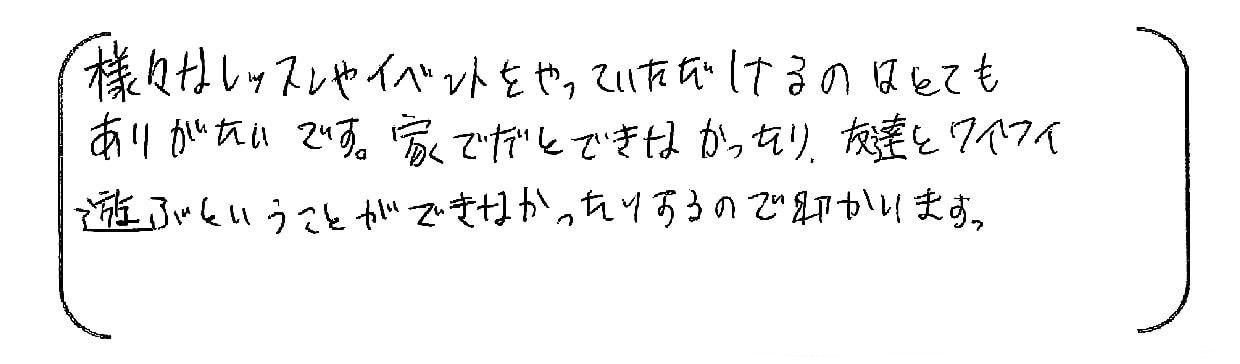 様々なレッスンやイベントをやっていただけるのはとても
ありがたいです。家でだとできなかったり、友達とワイワイ
遊ぶということができなかったりするので助かります。